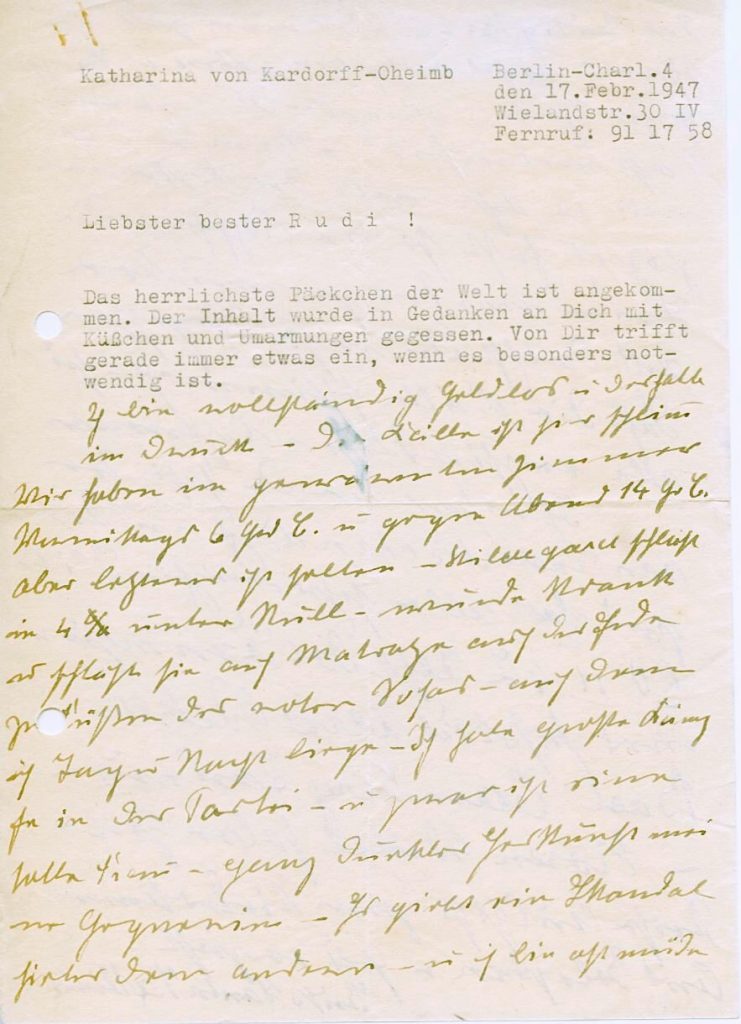 Katharina von Kardorff-Oheimb
Berlin-Charl.4
den 17.Febr.1947
Wielandstr.30 IV
Fernruf: 91 17 58
Liebster bester R u d i !
Das herrlichste Päckchen der Welt ist angekom-
men. Der Inhalt wurde in Gedanken an Dich mit
Küßchen und Umarmungen gegessen. Von Dir trifft
gerade immer etwas ein, wenn es besonders not-
wendig ist.
Ich bin vollständig Geldlos u deshalb
im Druck – Die Kälte ist hier schlimm
Wir haben im gewärmten Zimmer
Vormittags 6 Grd C. u gegen Abend 14 Gr C.
aber letzteres ist selten – Hildegard schläft
in 4 unter Null – wurde Krank
u schläft sie auf Matratze auf der Erde
zu Füßen des roten Sofas – auf dem
ich Tag u Nacht liege – Ich habe große Kämp
fe in der Partei – u zwar ist eine
tolle Frau – ganz dunkler Herkunft mei
ne Gegnerin – Es giebt ein Skandal
hinter dem andern – u ich bin oft müde